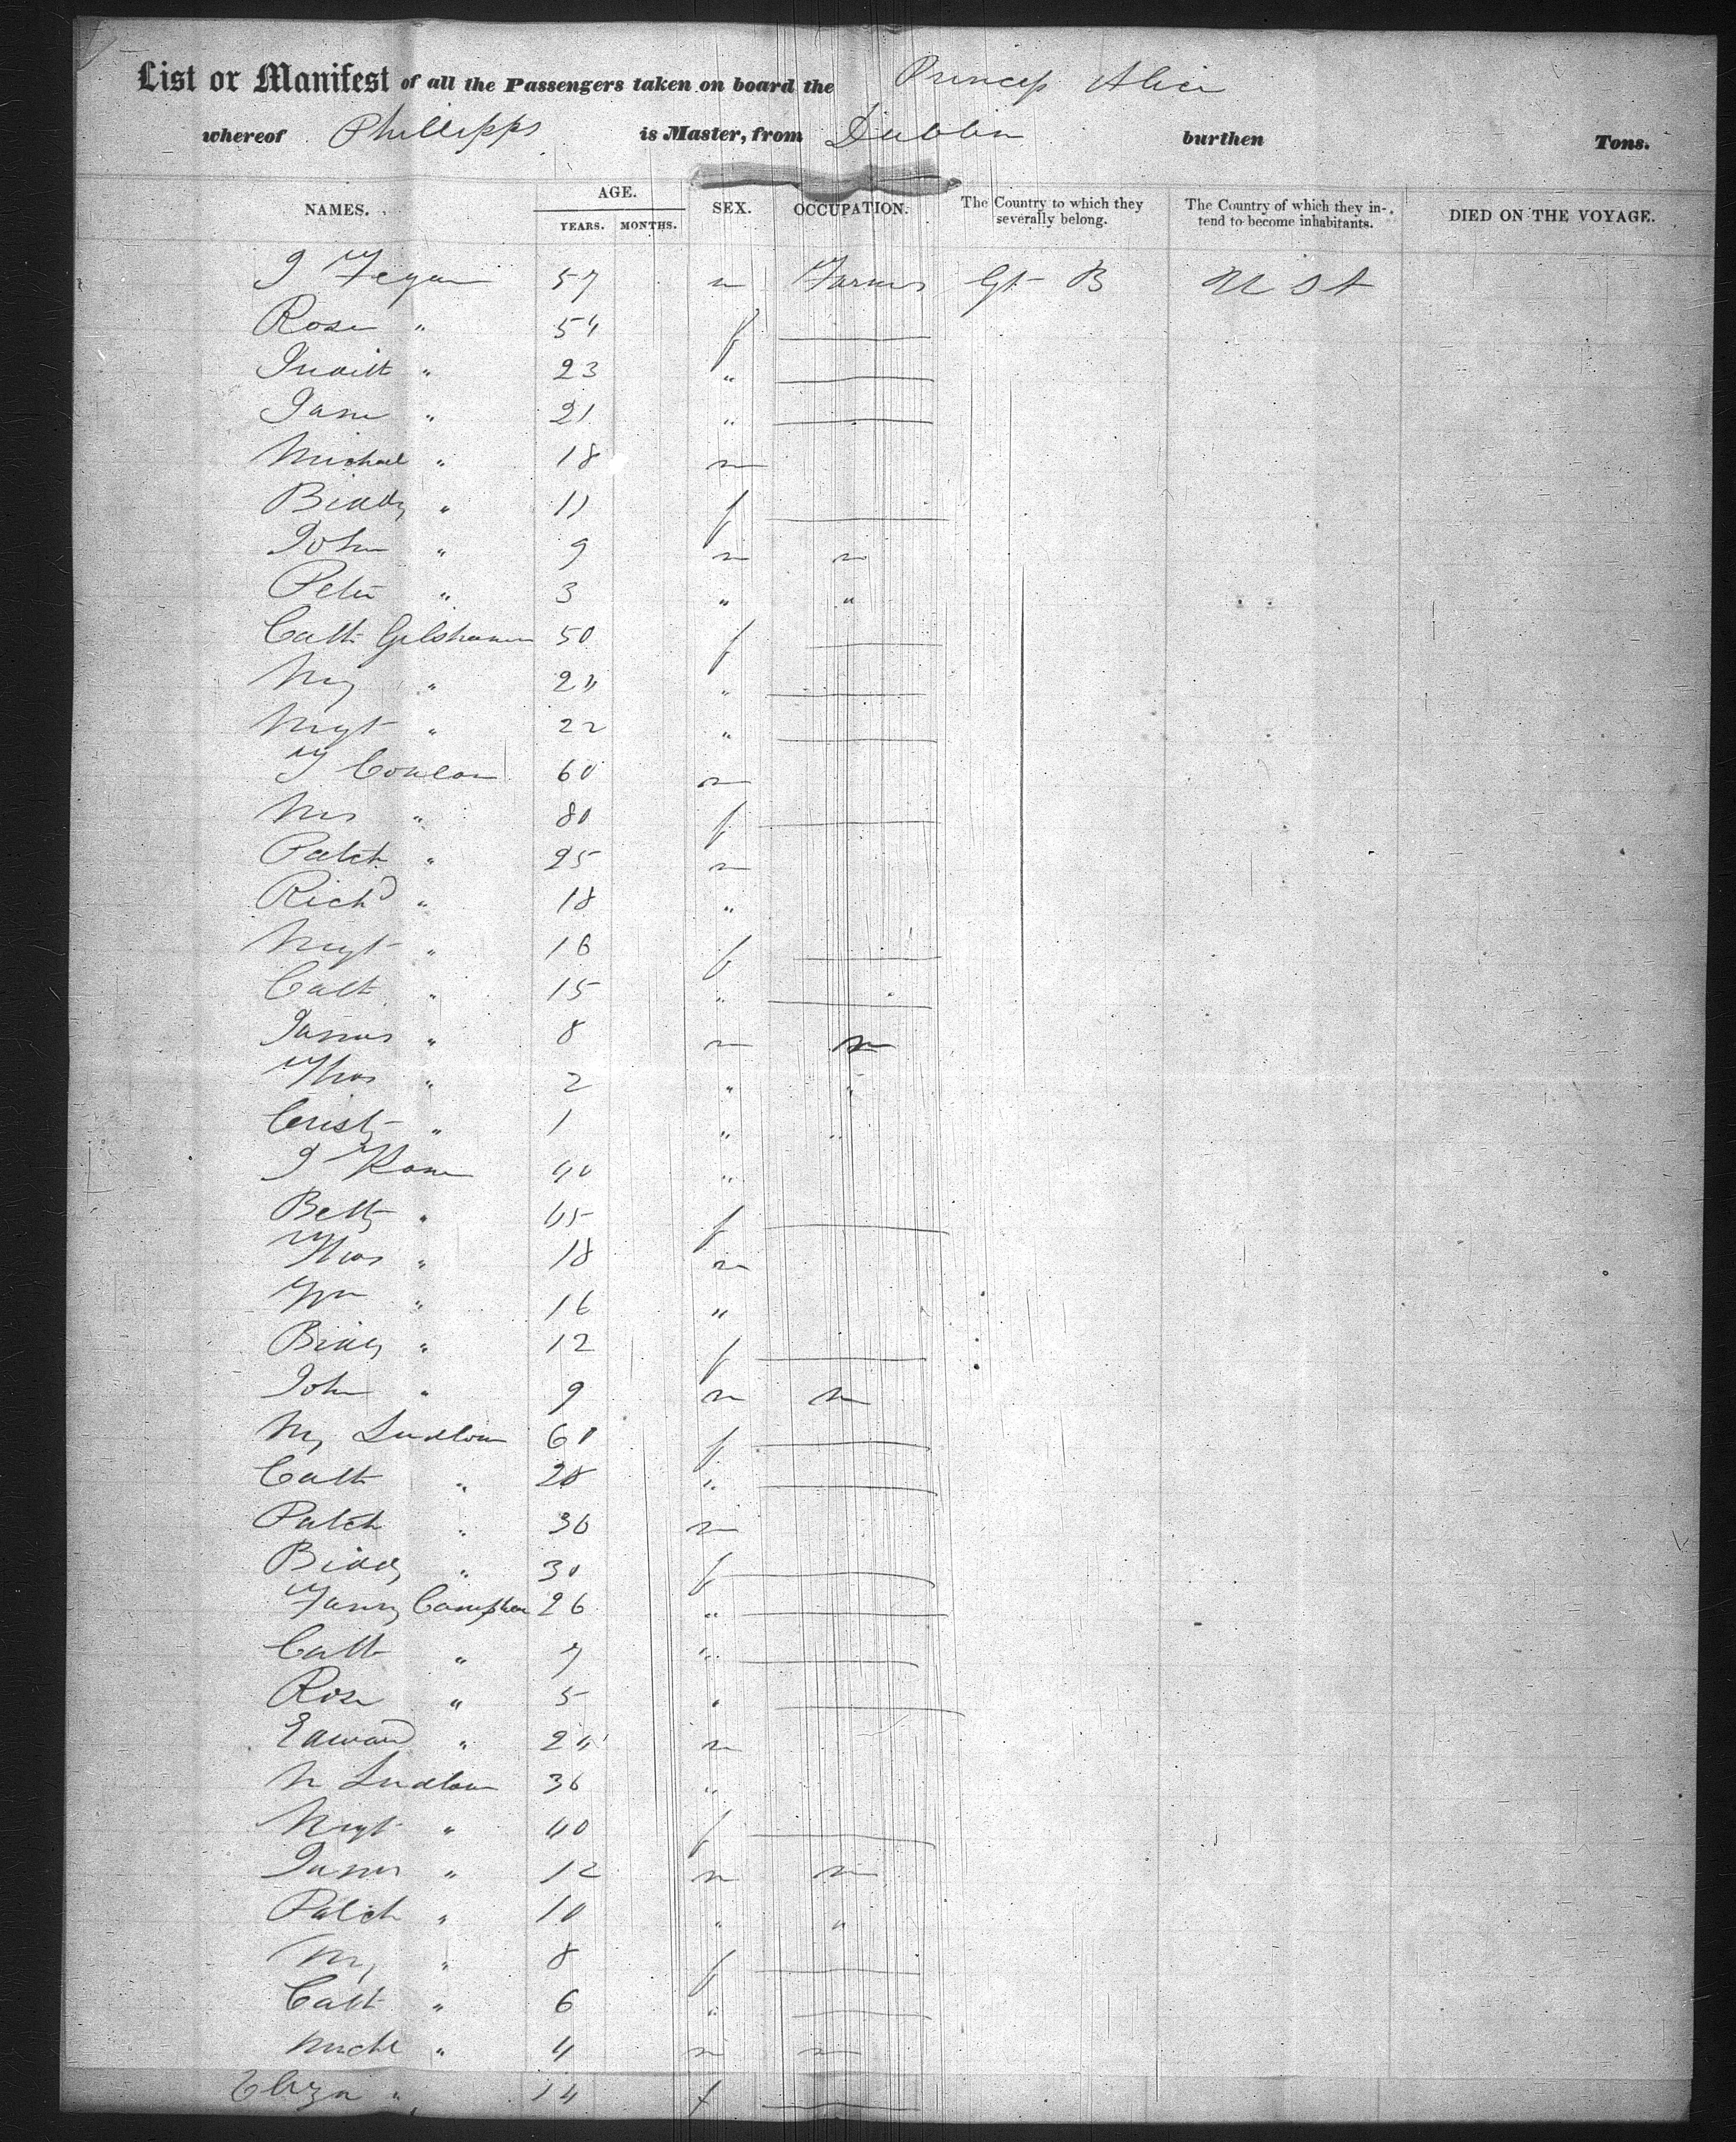 List or Manifest of all the Passengers taken on board the Princess Alice
whereof Phillipps is Master, from Dublin burthen Tons.
NAMES. AGE. YEARS. MONTHS. SEX. OCCUPATION. The Country to which they severally belong. The Country of which they intend to become inhabitants. DIED ON THE VOYAGE.
J Fegan 57 m Farmer Gt B U St
Rose " 54 f
23 "
Jane " 21 "
Michael " 18 m
Biddy " 11 f
John " 9 m m
Peter " 3 " "
Cath Gilshanen 50 f
My " 24 "
Mgt " 22 "
T Conlan 60 m
Mrs " 80 f
Patck " 25 m
Richd " 18 "
Mgt " 16 f
Cath " 15 "
James " 8 m m
Thos " 2 " "
Cristy " 1 " "
J Kane 40 "
Betty " 45 f
Thos " 18 m
Wm " 16 "
Biddy " 12 f
John " 9 m m
My Ludlow 60 f
Cath " 28 "
Patck " 36 m
Biddy " 30 f
Fanny 26 "
Cath " 7 "
Rose " 5 "
Edward " 24 m
Ludlow 36 "
Mgt " 40 f
James " 12 m m
Patck " 10 " "
My " 8 f
Cath " 6 "
Michl " 4 m m
Eliza " 14 f